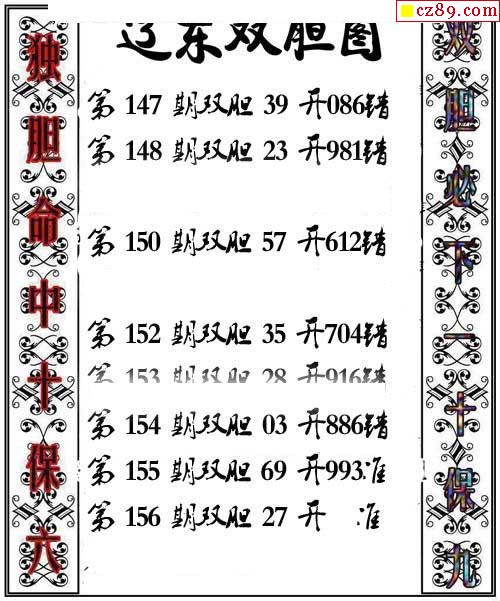 cz89.com
辽东双胆图
独胆命中十保六
第 147 期双胆 39 开086错
第 148 期双胆 23 开981错
第 150 期双胆 57 开612错
第 152 期双胆 35 开704错
第 153 期双胆 28 开916错
第 154 期双胆 03 开886错
第 155 期双胆 69 开993准
第 156 期双胆 27 开 准
双胆必下一十保九